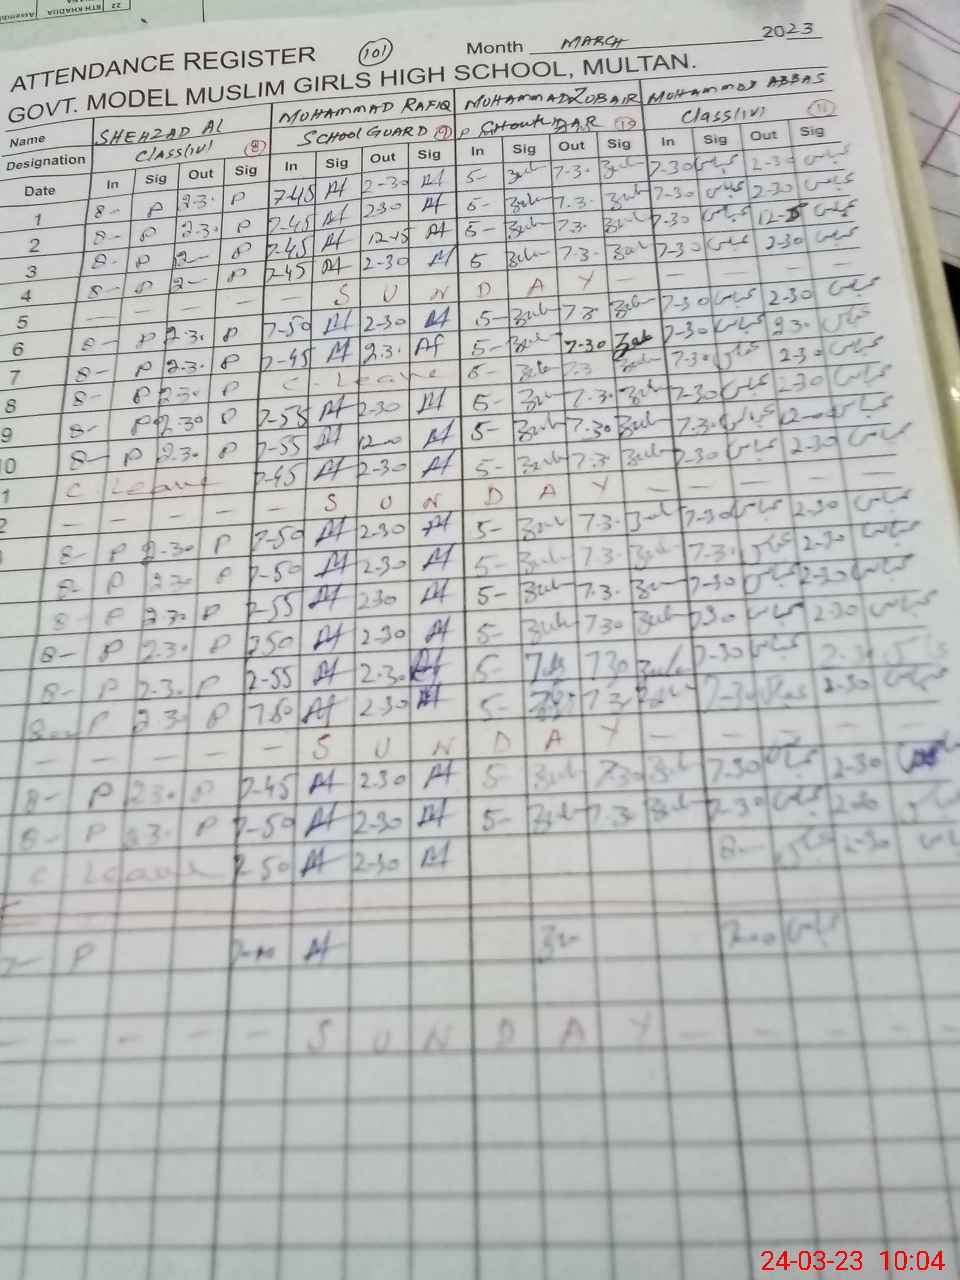 22 8TH KHADIJA Assembl
ATTENDANCE REGISTER (101) Month MARCH 2023
GOVT. MODEL MUSLIM GIRLS HIGH SCHOOL, MULTAN.
Name SHEHZAD AL MOHAMMAD RAFIQ MOHAMMAD ZUBAIR MOHAMMAD ABBAS
Designation Class(IV) SCHOOL GUARD Class(IV)
Date In Sig Out Sig In Sig Out Sig In Sig Out Sig In Sig Out Sig
1 8- P 2.3. P 7-45 Af 2-30 Af 5- Zub 7.3. Zub 7-30 عباس 2-30 عباس
2 8- P 2.3. P 7-45 Af 230 Af 5- Zub 7.3. Zub 7-30 عباس 2-30 عباس
3 8- P 2- P 7-45 Af 12-15 Af 5- Zub 7.3. Zub 7-30 عباس 12- عباس
4 8- P 2- P 7-45 Af 2-30 Af 5 Zub 7-3. Zub 7-30 عباس 2-30 عباس
5 - - - - - S U N D A Y - - - - -
6 8- P 2.3. P 7-50 Af 2-30 Af 5- Zub 7.3. Zub 7-30 عباس 2-30 عباس
7 8- P 2.3. P 7-45 Af 2.3. Af 5- Zub 7-30 Zub 7-30 عباس 2.3. عباس
8 8- P 2.3. P C. Leave 5- Zub 7.3 Zub 7.30 عباس 2-30 عباس
9 8- P 2.30 P 7-55 Af 2-30 Af 5- Zub 7.3. Zub 7-30 عباس 2-30 عباس
10 8- P 2.3. P 7-55 Af 12-00 Af 5- Zub 7.30 Zub 7.3. عباس 12-00 عباس
1 C Leave 7-45 Af 2-30 Af 5- Zub 7.3 Zub 7-30 عباس 2-30 عباس
2 - - - - - S U N D A Y - - - - -
8- P 2-30 P 7-50 Af 2-30 Af 5- Zub 7.3. Zub 7-30 عباس 2-30 عباس
8- P 2.30 P 7-50 Af 2-30 Af 5- Zub 7.3. Zub 7-3. عباس 2-30 عباس
8- P 2.30 P 7-55 Af 230 Af 5- Zub 7.3. Zub 7-30 عباس 2-30 عباس
8- P 2.3. P 750 Af 2-30 Af 5- Zub 730 Zub 730 عباس 2-30 عباس
8- P 2-3. P 7-55 Af 2-3. Af 5- 730 Zub 7-30 عباس 2-30 عباس
8- P 2 3. P 750 Af 230 Af 5- 7.3 7-30 عباس 2-30 عباس
- - - - - S U N D A Y - - - - -
8- P 230 P 7-45 Af 2-30 Af 5- Zub 7.30 Zub 7-30 عباس 2-30
8- P 2.3. P 7-50 Af 2-30 Af 5- Zub 7.3. Zub 7-30 عباس 2-30 عباس
C Leave 7-50 Af 2-30 Af 8- عباس 2-30 عباس
P Af عباس
- - - - - S U N D A Y - - - - -
24-03-23 10:04